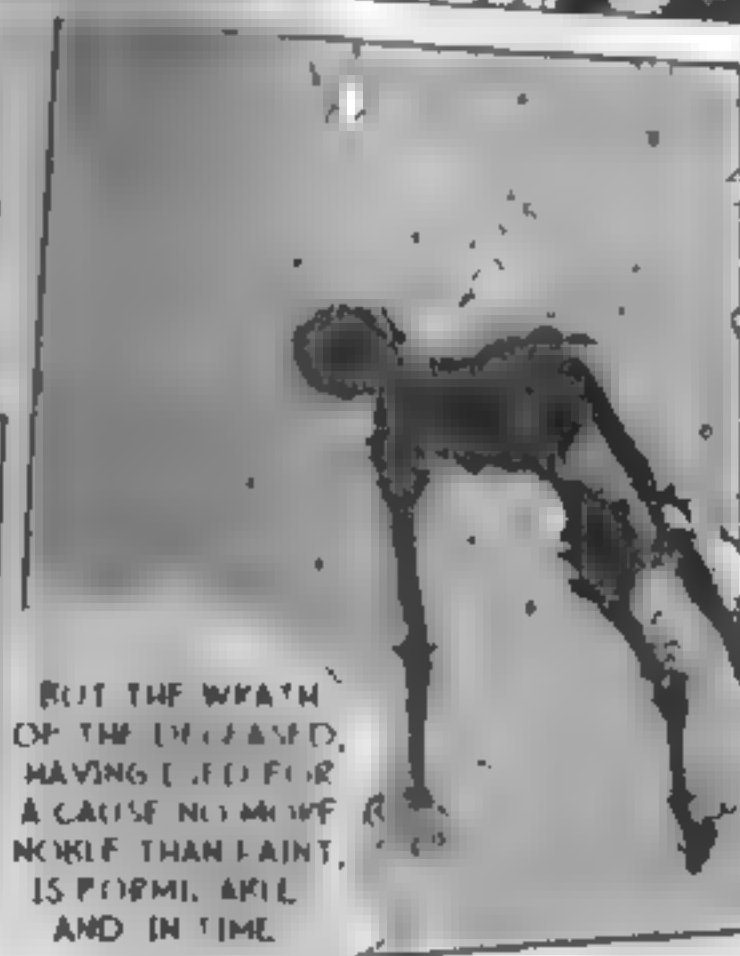 BUT THE WRATH
OF THE DECEASED,
HAVING DIED FOR
A CAUSE NO MORE
NOBLE THAN PAINT,
IS FORMIDABLE
AND IN TIME